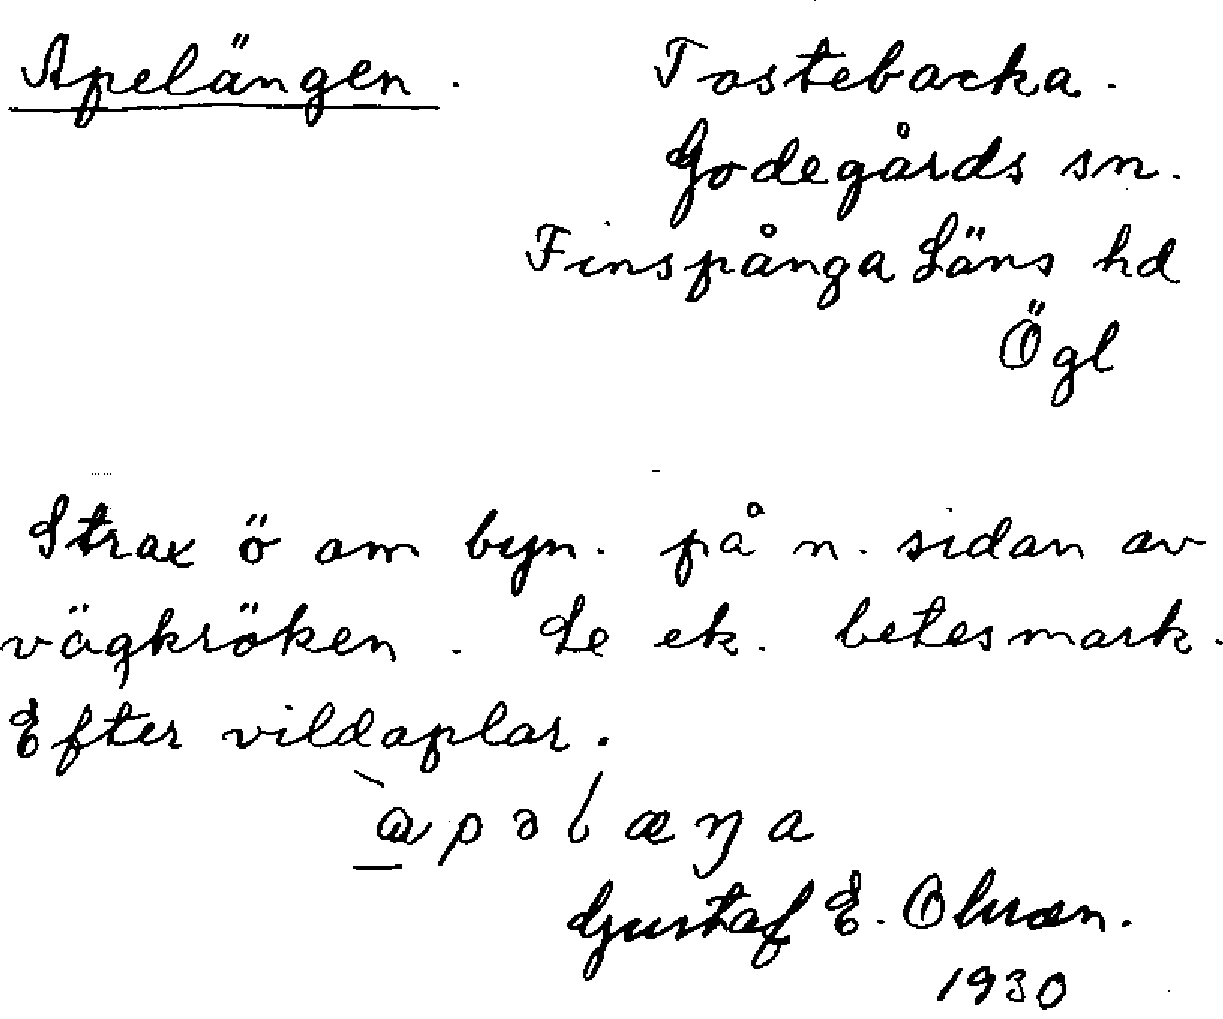 Apelängen. Tostebacka.
Godegårds sn.
Finspånga Läns hd
Ögl
Strax ö om byn. på n. sidan av
vägkröken. Le ek. betesmark.
Efter vildaplar.
Gustaf E.
1930